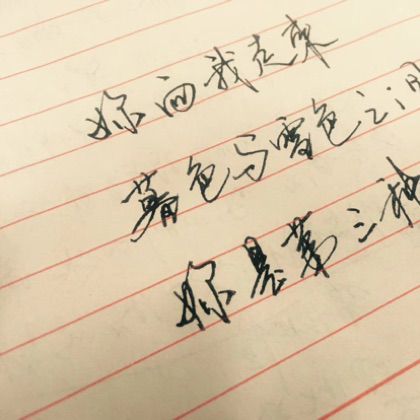 你向我走来
暮色与雪色之间
你是第三种